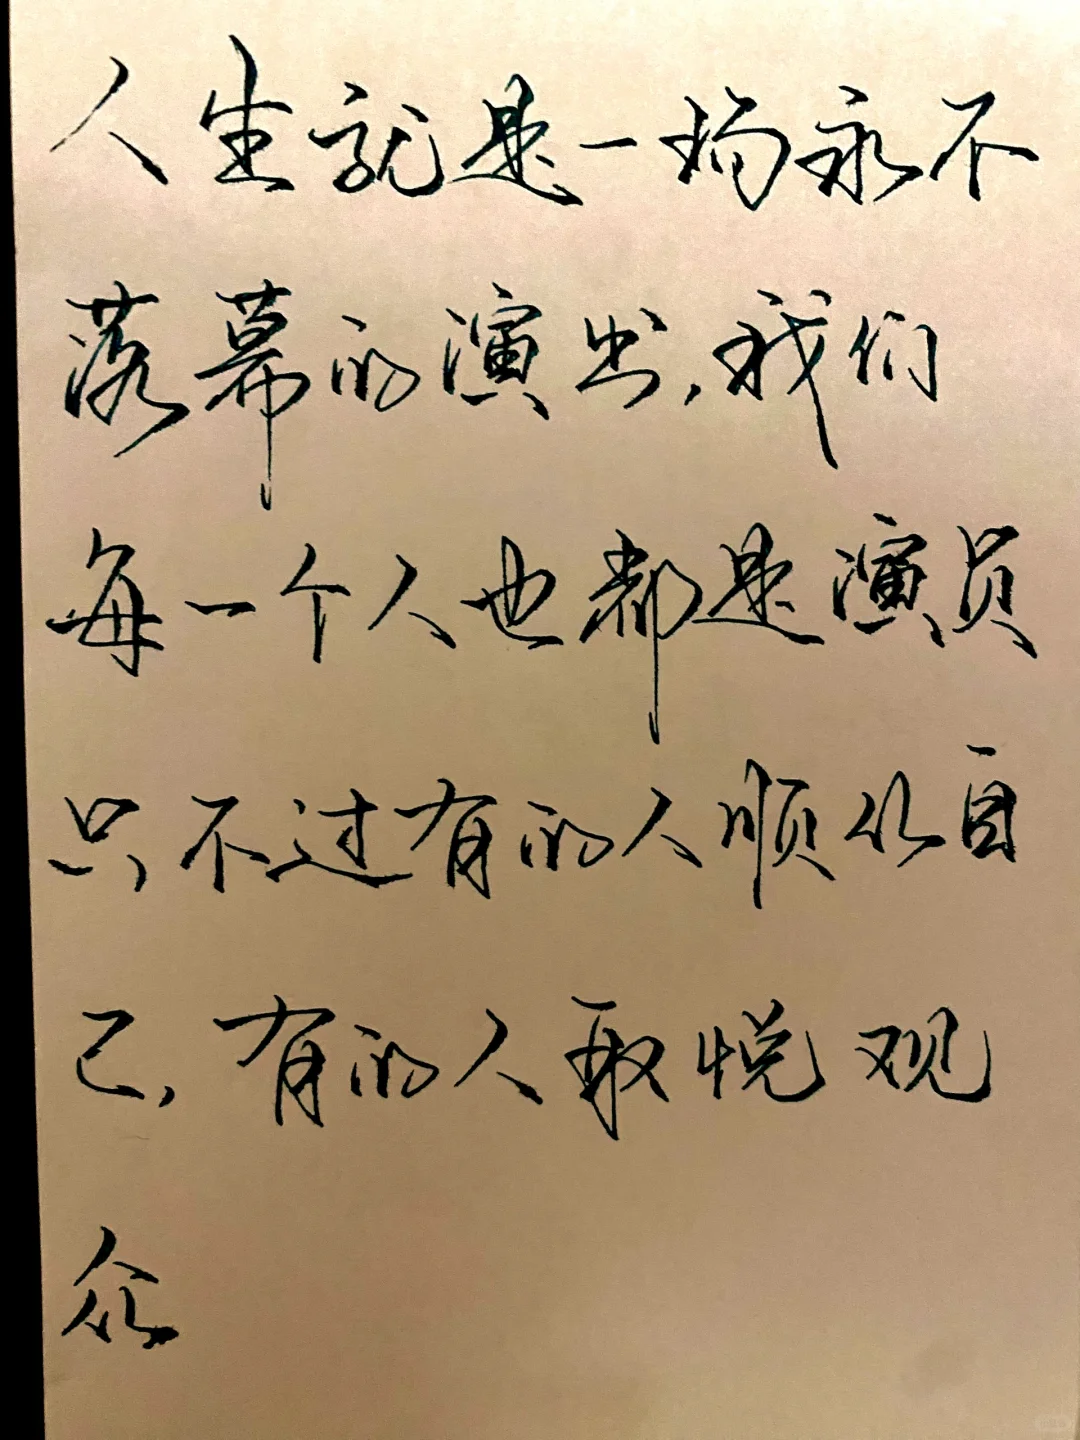 人生就是一场永不
落幕的演出,我们
每一个人也都是演员
只不过有的人顺从自
己,有的人取悦观
众